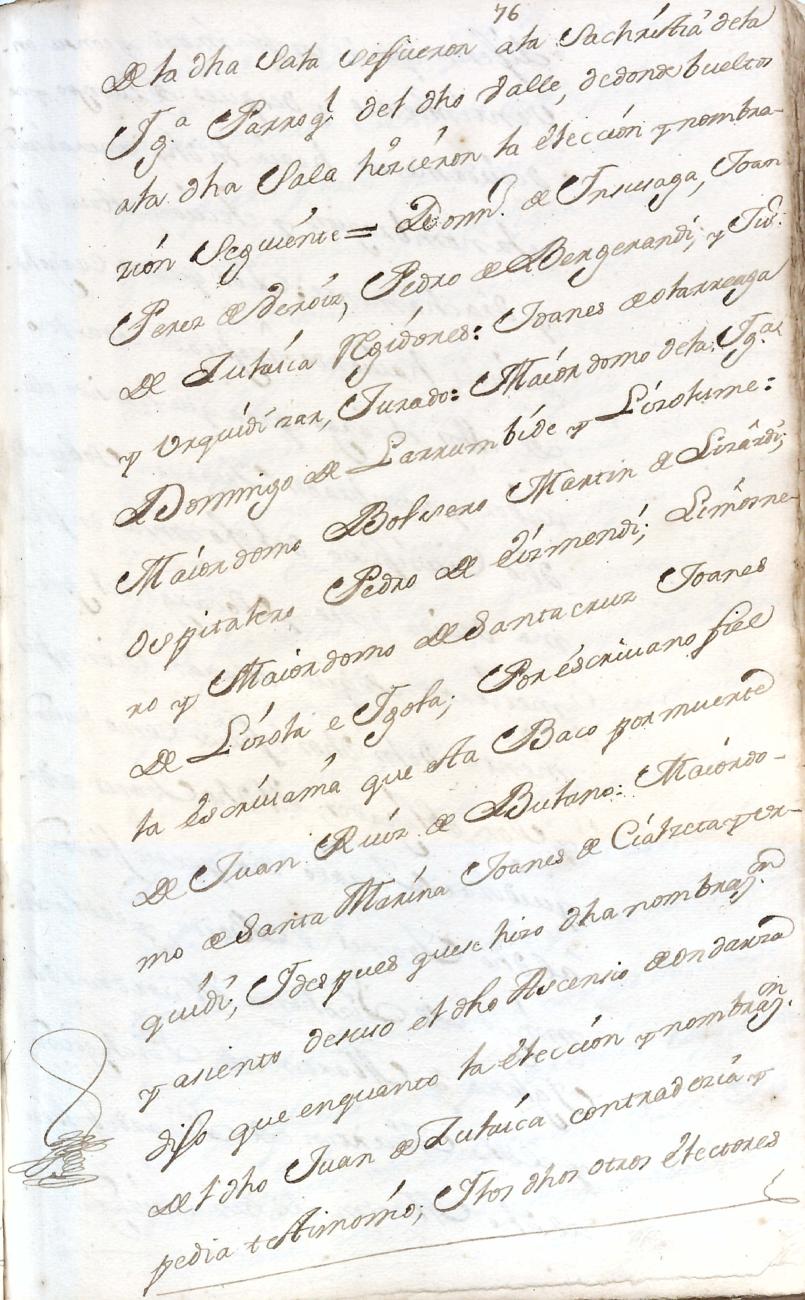 76
De la dha Sala se fueron a la Sachristia de la
Yga Parrogl del dho Valle, de donde bueltos
a la dha Sala hizcieron la elección y nombra-
zión Seguiente = Domn. de Insusaga, Joan
Perez de Veroiz, Pedro de Bergerandi, y Ju.
De Zulaica Regidores: Joanes de otarreaga
y Urquidi zar, Jurado: Maiordomo de la Yga
Domingo de Larrumbide y Lizolume:
Maiordomo Bolsero Martin de Lizardi;
Ospitalero Pedro de Eizmendi; Limosne-
ro y Maiordomo de Santa cruz Joanes
De Lizola e Ygola; Por escriuano fiel
la escriuania que sta Baco por muerte
De Juan Ruiz de Butano: Maiordo-
mo de Santa Marina Joanes de Cialzeta y er-
quidi, Y despues que se hizo dha nombrazn.
y asiento de suso el dho Ascensio de ondarza
dijo que en quanto la elección y nombrazn.
de el dho Juan de Zulaica contradezia y
pedia testimonio; Y los dhos otros electores